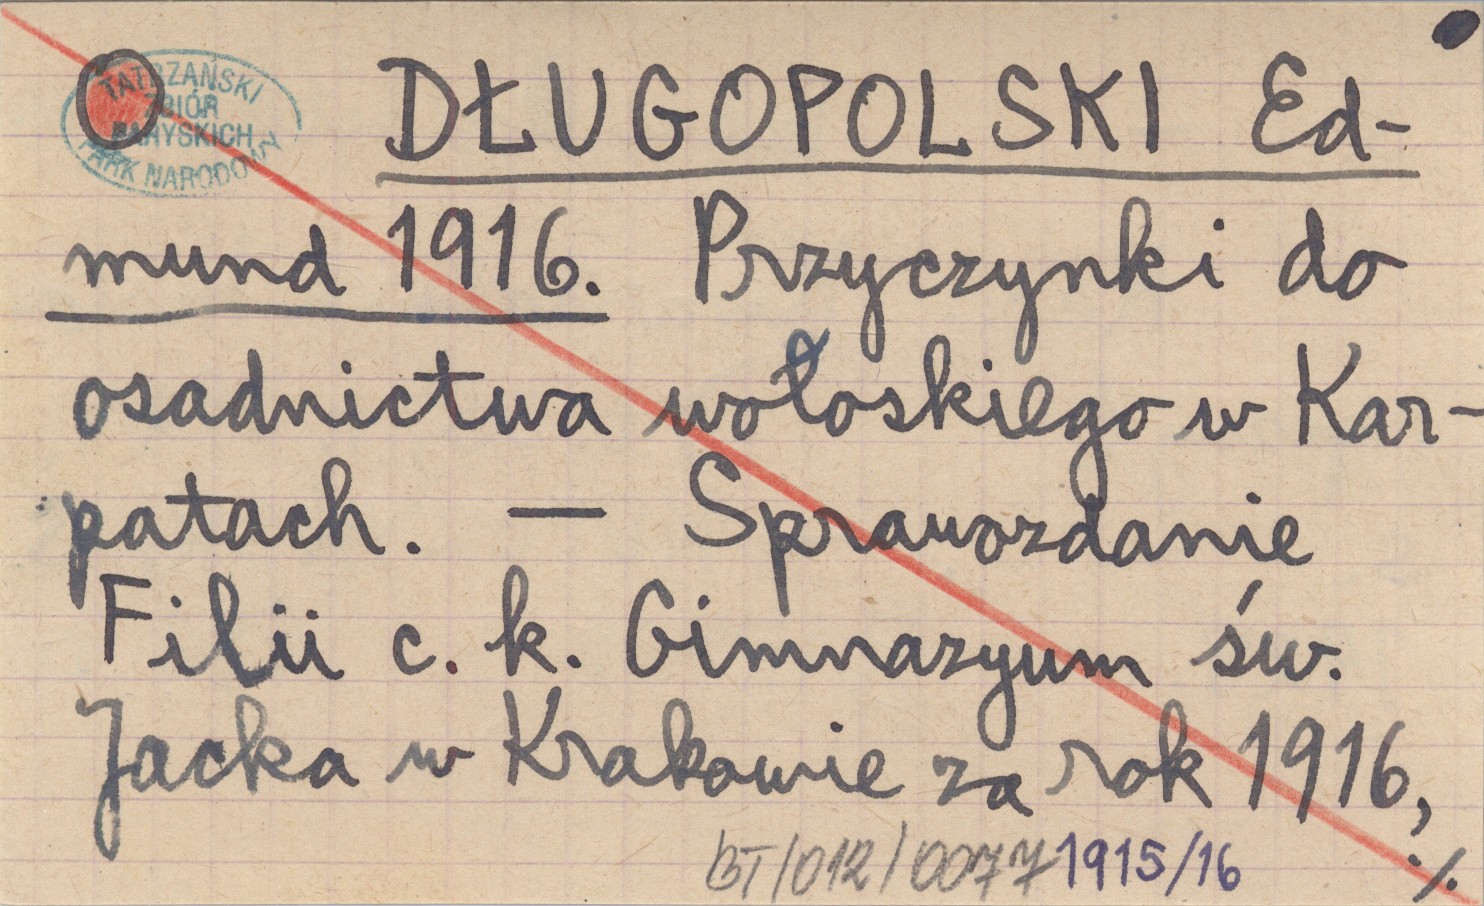 TATRZAŃSKI
ZBIÓR
PARYSKICH
PARK NARODOWY
DŁUGOPOLSKI Ed-
mund 1916. Przyczynki do
osadnictwa wołoskiego w Kar-
patach. — Sprawozdanie
Filii c. k. Gimnazyum św.
Jacka w Krakowie za rok 1916,
BT/012/0077 1915/16 ./.